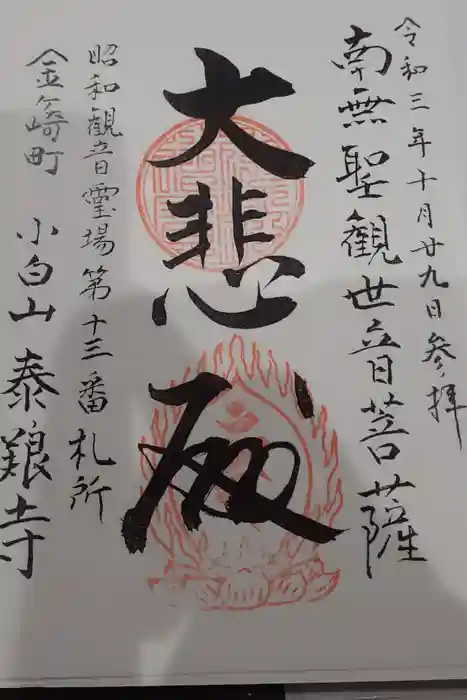 令和三年十月廿九日参拝
南無聖観世音菩薩
大悲殿
昭和観音霊場第十三番札所
金崎町 小白山 泰銀寺